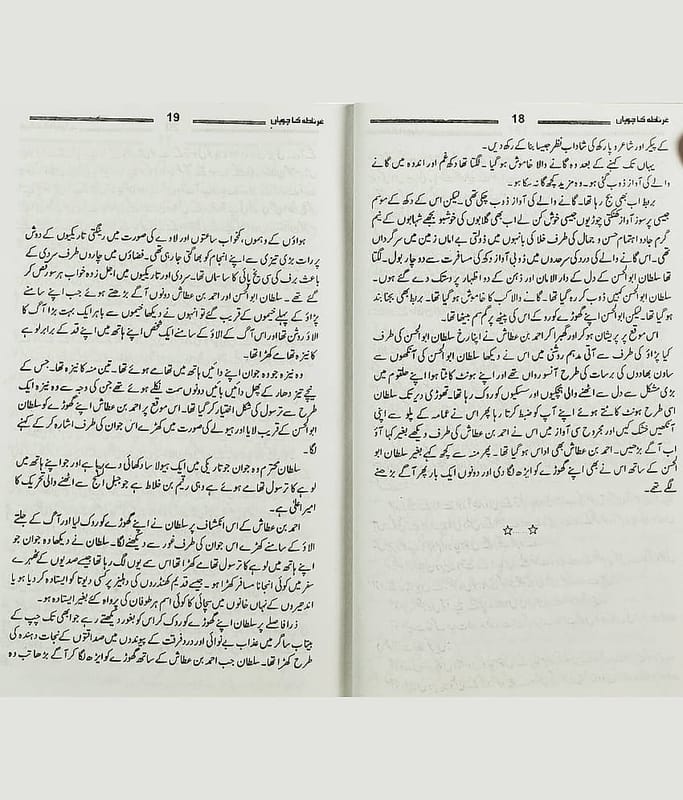 غرناطہ کا چوپان 18
کے پیکر اور شاعر و بارکھ کی شاداب نظر جیسا بنا کے رکھ دیں۔
یہاں تک کہنے کے بعد وہ گانے والا خاموش ہو گیا۔ لگتا تھا دکھ غم اور اندوہ میں گانے
والے کی آواز ڈوب گئی ہو۔ وہ مزید کچھ گا نہ سکا ہو۔
بربط اب بھی بج رہا تھا۔ گانے والے کی آواز ڈوب چکی تھی۔ لیکن اس کے دکھ کے موسم
جیسی پرسوز آواز کھنکتی چوڑیوں جیسی خوش کن لے اب بھی گلابوں کی خوشبو بجھے شہابوں کے نیم
گرم جادو اہتمام حسن و جمال کی طرف خلا کی بانہوں میں ڈولتی بے اماں زمین میں سرگرداں
تھی۔ اس گانے والے کی درد کی سرحدوں میں ڈوبی آواز دکھ کی مسافرت سے دو چار بول۔ لگتا
تھا سلطان ابوالحسن کے دل کے دار الامان اور ذہن کے دو اظہار پر دستک دے گئے ہوں۔
سلطان ابوالحسن کہیں ڈوب کر رہ گیا تھا۔ گانے والا کب کا خاموش ہو گیا تھا۔ بربط بھی بجنا بند
ہو گیا تھا۔ لیکن ابوالحسن اپنے گھوڑے کو روکے اس کی پیٹھ پر گم سم بیٹھا تھا۔
اس موقع پر پریشان ہو کر اور گھبرا کر احمد بن عطاش نے اپنا رخ سلطان ابوالحسن کی طرف
کیا پڑاؤ کی طرف سے آتی مدہم روشنی میں اس نے دیکھا سلطان ابوالحسن کی آنکھوں سے
ساون بھادوں کی برسات کی طرح آنسو رواں تھے اور اپنے ہونٹ کاٹتا ہوا اپنے حلقوم میں
بڑی مشکل سے دل سے اٹھنے والی ہچکیوں اور سسکیوں کو روک رہا تھا۔ تھوڑی دیر تک سلطان
اسی طرح ہونٹ کاٹتے ہوئے اپنے آپ کو ضبط کرتا رہا پھر اس نے عمامہ کے پلو سے اپنی
آنکھیں خشک کیں اور مجروح سی آواز میں اس نے احمد بن عطاش کی طرف دیکھے بغیر کہا آؤ
اب آگے بڑھیں۔ احمد بن عطاش بھی اداس ہو گیا تھا۔ پھر منہ سے کچھ کہے بغیر سلطان ابو
الحسن کے ساتھ اس نے بھی اپنے گھوڑے کو ایڑھ لگا دی اور دونوں ایک بار پھر آگے بڑھنے
لگے تھے۔
☆......☆
غرناطہ کا چوپان 19
ہواؤں کے وہموں، کمخواب ساعتوں اور لاوے کی صورت میں رینگتی تاریکیوں کے دوش
پر رات بڑی تیزی سے اپنے انجام کو بھاگتی جا رہی تھی۔ فضاؤں میں چاروں طرف سردی کے
باعث برف کی سی یخ پائی کا سا سماں تھا۔ سردی اور تاریکیوں میں اجل زدہ خواب ہر سو رقص کر
گئے تھے۔ سلطان ابوالحسن اور احمد بن عطاش دونوں آگے بڑھتے ہوئے جب اپنے سامنے
پڑاؤ کے پہلے خیموں کے قریب گئے تو انہوں نے دیکھا خیموں سے باہر ایک بہت بڑا آگ کا
الاؤ روشن تھا اور اس آگ کے الاؤ کے سامنے ایک شخص اپنے ہاتھ میں اپنے قد کے برابر لوہے
کا نیزہ تھامے کھڑا تھا۔
وہ نیزہ جو وہ جوان اپنے دائیں ہاتھ میں تھامے ہوئے تھا۔ تین منہ کا نیزہ تھا۔ جس کے
نیچے تیز دھار کے پھل دائیں بائیں دونوں سمت نکلے ہوئے تھے جن کی وجہ سے وہ نیزہ ایک
طرح سے ترسول کی شکل اختیار کر گیا تھا۔ اس موقع پر احمد بن عطاش اپنے گھوڑے کو سلطان
ابوالحسن کے قریب لایا اور ہیولے کی صورت میں کھڑے اس جوان کی طرف اشارہ کر کے کہنے
لگا۔
سلطان محترم وہ جوان جو تاریکی میں ایک ہیولا سا دکھائی دے رہا ہے اور جو اپنے ہاتھ میں
لوہے کا ترسول تھامے ہوئے ہے وہی رقیم بن خلاط ہے جو جبل الثلج سے اٹھنے والی تحریک کا
امیر اعلیٰ ہے۔
احمد بن عطاش کے اس انکشاف پر سلطان نے اپنے گھوڑے کو روک لیا اور آگ کے جلتے
الاؤ کے سامنے کھڑے اس جوان کی طرف غور سے دیکھنے لگا۔ سلطان نے دیکھا وہ جوان جو
اپنے ہاتھ میں لوہے کا ترسول تھامے کھڑا تھا اس سے یوں لگ رہا تھا جیسے صدیوں کے ٹھہرے
سفر میں کوئی انجانا مسافر کھڑا ہو۔ جیسے قدیم کھنڈروں کی دہلیز پر کسی دیوتا کو ایستادہ کر دیا ہو یا
اندھیروں کے نہاں خانوں میں سچائی کا کوئی اسم ہر طوفان کی پرواہ کئے بغیر ایستادہ ہو۔
ذرا فاصلے پر سلطان اپنے گھوڑے کو روک کر اس کو بغور دیکھتے رہے جو ابھی تک چپ کے
بیتاب ساگر میں عذاب بے نوائی اور درد فرقت کے پیوندوں میں صداقتوں کے نجات دہندہ کی
طرح کھڑا تھا۔ سلطان جب احمد بن عطاش کے ساتھ گھوڑے کو ایڑھ لگا کر آگے بڑھا تب وہ